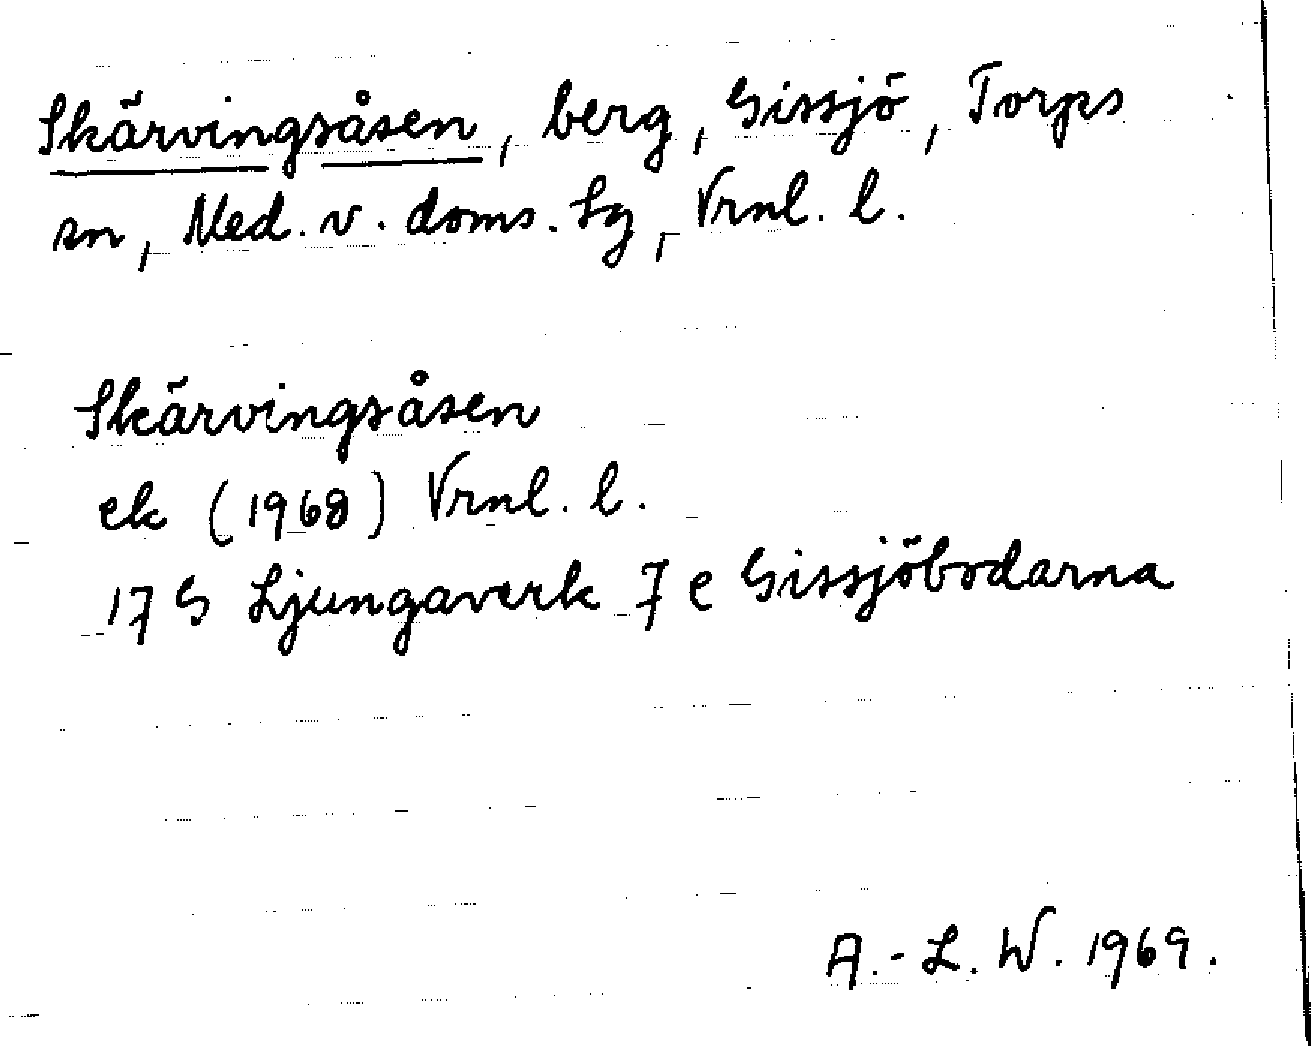 Skärvingsåsen, berg, Gissjö, Torps
sn, Med. v. doms. Lg, Vrnl. l.
Skärvingsåsen
ek (1968) Vrnl. l.
17 G Ljungaverk 7 e Gissjöbodarna
A.-L. W. 1969.